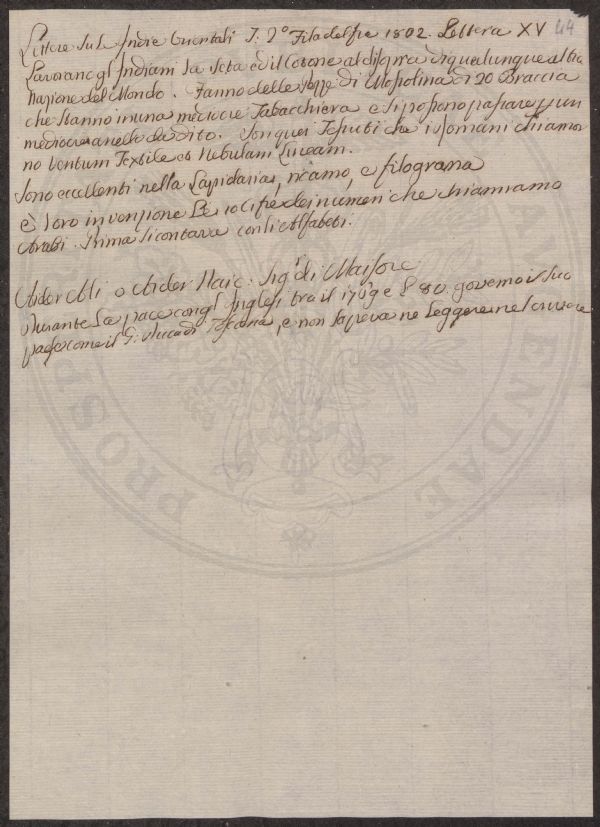 Lettere Sulle Indie Orientali T. 2º Filadelfia 1802. Lettera XV 44
Lavorano gl'Indiani la seta ed il Cotone al disopra di qualunque altra
Nazione del Mondo. Fanno delle pezze di Mossolina di 20 Braccia
che stanno in una mediocre Tabacchiera e si possono passare p un
mediocre anello da dito. Son quei Tessuti che i Romani chiama
no Ventum Textile et Nebulam Lineam.
Sono eccellenti nella Lapidaria, ricamo, e filograna
è loro invenzione Le 10 cifre dei numeri che chiamiamo
Arabi. Prima si contava con li Alfabeti.
Aider Ali o Aider Naic. Sig. di Maissore
durante La pace con gl'Inglesi tra il 1769 e L'80. governò il suo
paese come il G. Duca di Toscana, e non sapeva ne Leggere ne scrivere
PROSP
AVENDAE